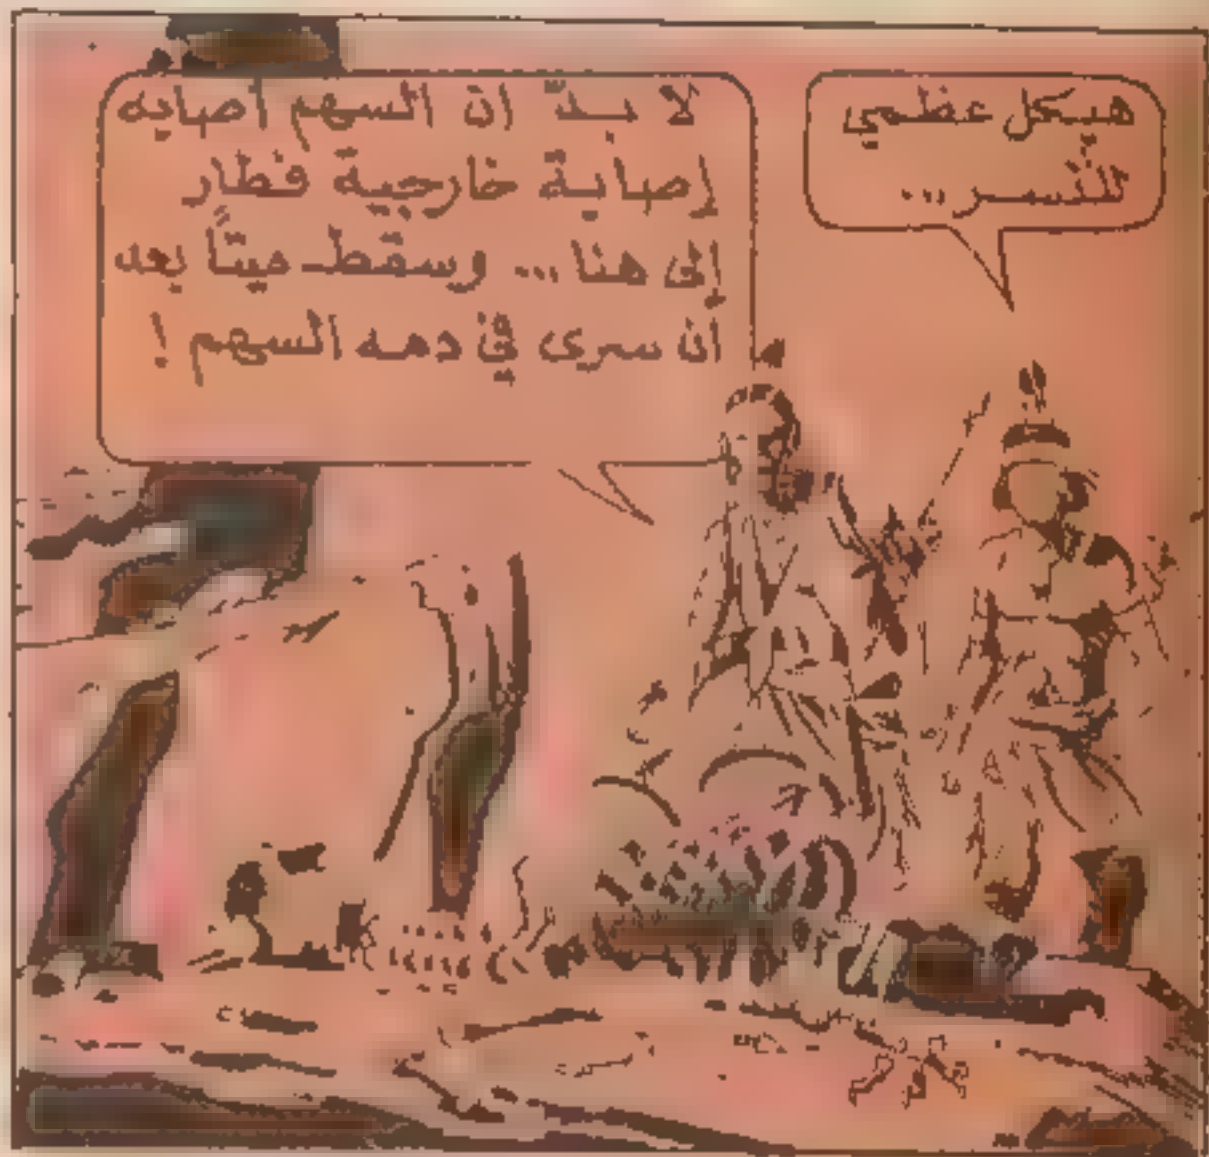 هيكل عظمي
للنسر ...
لا بدّ ان السهم أصابه
إصابة خارجية فطار
إلى هنا ... وسقط ميتاً بعد
أن سرى في دمه السهم !